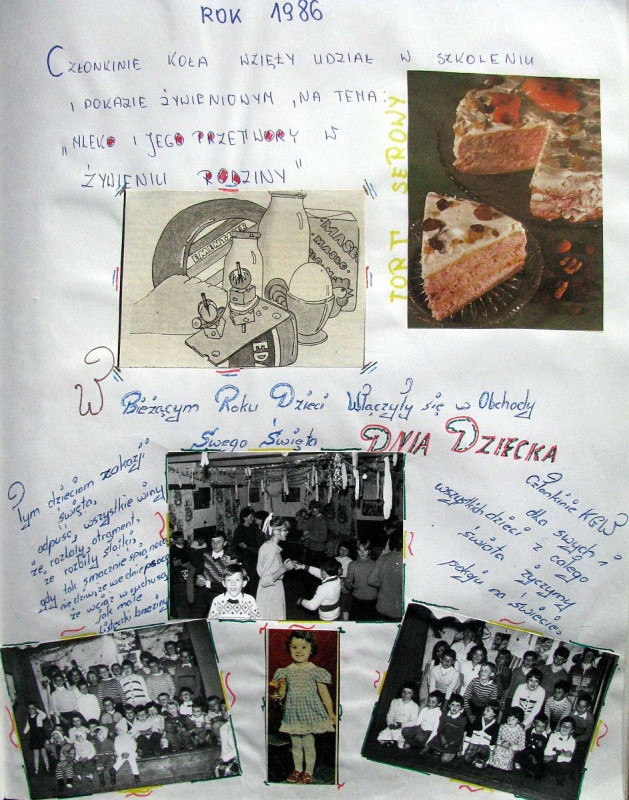 ROK 1986
CZŁONKINIE KOŁA WZIĘŁY UDZIAŁ W SZKOLENIU
I POKAZIE ŻYWIENIOWYM „NA TEMA:
„MLEKO I JEGO PRZETWORY W
ŻYWIENIU RODZINY"
TORT SEROWY
EMENTALER
MASŁO
MASŁO
ED
W Bieżącym Roku Dzieci Włączyły się w Obchody
Swego Święta DNIA DZIECKA
Tym dzieciom z okazji
święta,
odpuść wszystkie winy
że rozlały atrament,
że rozbiły słoiki,
gdy tak smacznie śpią nocą
że wciąż w
jak małe
listeczki brzeziny
Członkinie KGW
dla swych i
wszystkich dzieci z całego
świata życzymy
pokoju na świecie.